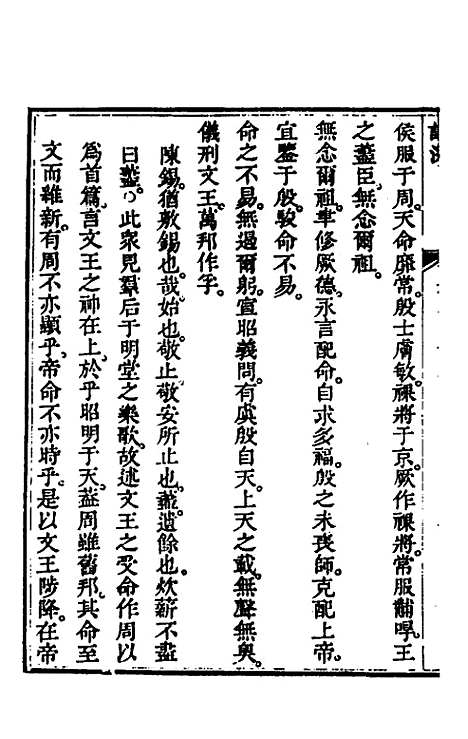 侯服于周。天命靡常。殷士膚敏。祼將于京。厥作祼將。常服黼冔。王
之藎臣。無念爾祖。
無念爾祖。聿修厥德。永言配命。自求多福。殷之未喪師。克配上帝。
宜鑒于殷。駿命不易。
命之不易。無遏爾躬。宣昭義問。有虞殷自天。上天之載。無聲無臭。
儀刑文王。萬邦作孚。
陳錫。猶敷錫也。哉。始也。敬止。敬安所止也。藎。遺餘也。炊薪不盡
曰藎。此衆見羣后于明堂之樂歌。故述文王之受命作周以
為首篇。言文王之神在上。於乎昭明于天。葢周雖舊邦。其命至
文而維新。有周不亦顯乎。帝命不亦時乎。是以文王陟降。在帝